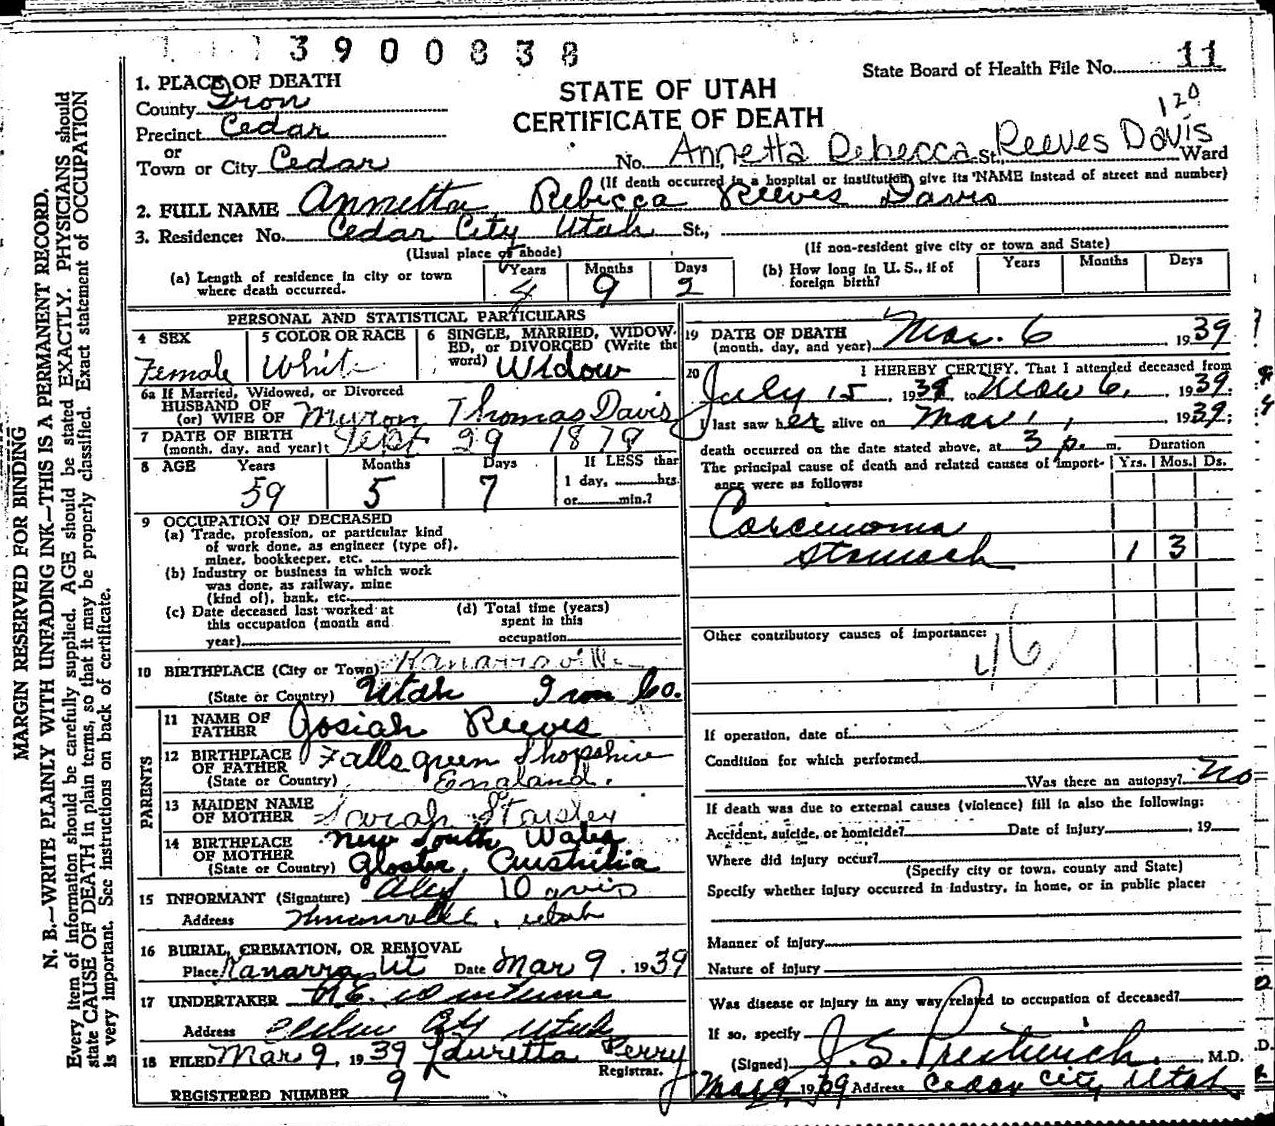 3900838
11
State Board of Health File No.
120
STATE OF UTAH
CERTIFICATE OF DEATH
1. PLACE OF DEATH
County Iron
Precinct Cedar
or
Town or City Cedar No. Annetta Rebecca St. Reeves Davis Ward
(If death occurred in a hospital or institution, give its NAME instead of street and number)
2. FULL NAME Annetta Rebicca Reeves Davis
3. Residence: No. Cedar City Utah St.,
(Usual place of abode) (If non-resident give city or town and State)
(a) Length of residence in city or town where death occurred. Years 4 Months 9 Days 2
(b) How long in U. S., if of foreign birth? Years Months Days
PERSONAL AND STATISTICAL PARTICULARS
4 SEX Female
5 COLOR OR RACE White
6 SINGLE, MARRIED, WIDOWED, or DIVORCED (Write the word) Widow
6a If Married, Widowed, or Divorced
HUSBAND OF
(or) WIFE OF Myron Thomas Davis
7 DATE OF BIRTH
(month, day, and year) Sept 29 1879
8 AGE Years 59 Months 5 Days 7
If LESS than
1 day, hrs.
or min.?
9 OCCUPATION OF DECEASED
(a) Trade, profession, or particular kind
of work done, as engineer (type of),
miner, bookkeeper, etc.
(b) Industry or business in which work
was done, as railway, mine
(kind of), bank, etc.
(c) Date deceased last worked at
this occupation (month and
year)
(d) Total time (years)
spent in this
occupation
10 BIRTHPLACE (City or Town) Kanarraville
(State or Country) Utah Iron Co.
PARENTS
11 NAME OF
FATHER Josiah Reeves
12 BIRTHPLACE
OF FATHER Fallsgreen Shopshire
(State or Country) England.
13 MAIDEN NAME
OF MOTHER Sarah
14 BIRTHPLACE New South Wales
OF MOTHER
(State or Country) Gloster, Austrilia
15 INFORMANT (Signature) Davis
Address , Utah
16 BURIAL, CREMATION, OR REMOVAL
Place Kanarra Ut Date Mar 9, 1939
17 UNDERTAKER
Address Cedar City Utah
18 FILED Mar 9, 1939 Lauretta Perry
Registrar.
REGISTERED NUMBER 9
19 DATE OF DEATH
(month, day, and year) Mar. 6 1939
20 I HEREBY CERTIFY, That I attended deceased from
July 15, 193 to Mar 6, 1939.
I last saw her alive on Mar 1, 1939.
death occurred on the date stated above, at 3 p. m.
The principal cause of death and related causes of importance were as follows:
Duration
Yrs. Mos. Ds.
Carcinoma
Stomach 1 3
Other contributory causes of importance:
46
If operation, date of
Condition for which performed
Was there an autopsy? No
If death was due to external causes (violence) fill in also the following:
Accident, suicide, or homicide? Date of injury , 19
Where did injury occur?
(Specify city or town, county and State)
Specify whether injury occurred in industry, in home, or in public place:
Manner of injury
Nature of injury
Was disease or injury in any way related to occupation of deceased?
If so, specify
(Signed) J. S. Prestwich, M.D.
Mar 9, 1939 Address Cedar City Utah
MARGIN RESERVED FOR BINDING
N. B.—WRITE PLAINLY WITH UNFADING INK—THIS IS A PERMANENT RECORD.
Every item of information should be carefully supplied. AGE should be stated EXACTLY. PHYSICIANS should
state CAUSE OF DEATH in plain terms, so that it may be properly classified. Exact statement of OCCUPATION
is very important. See instructions on back of certificate.